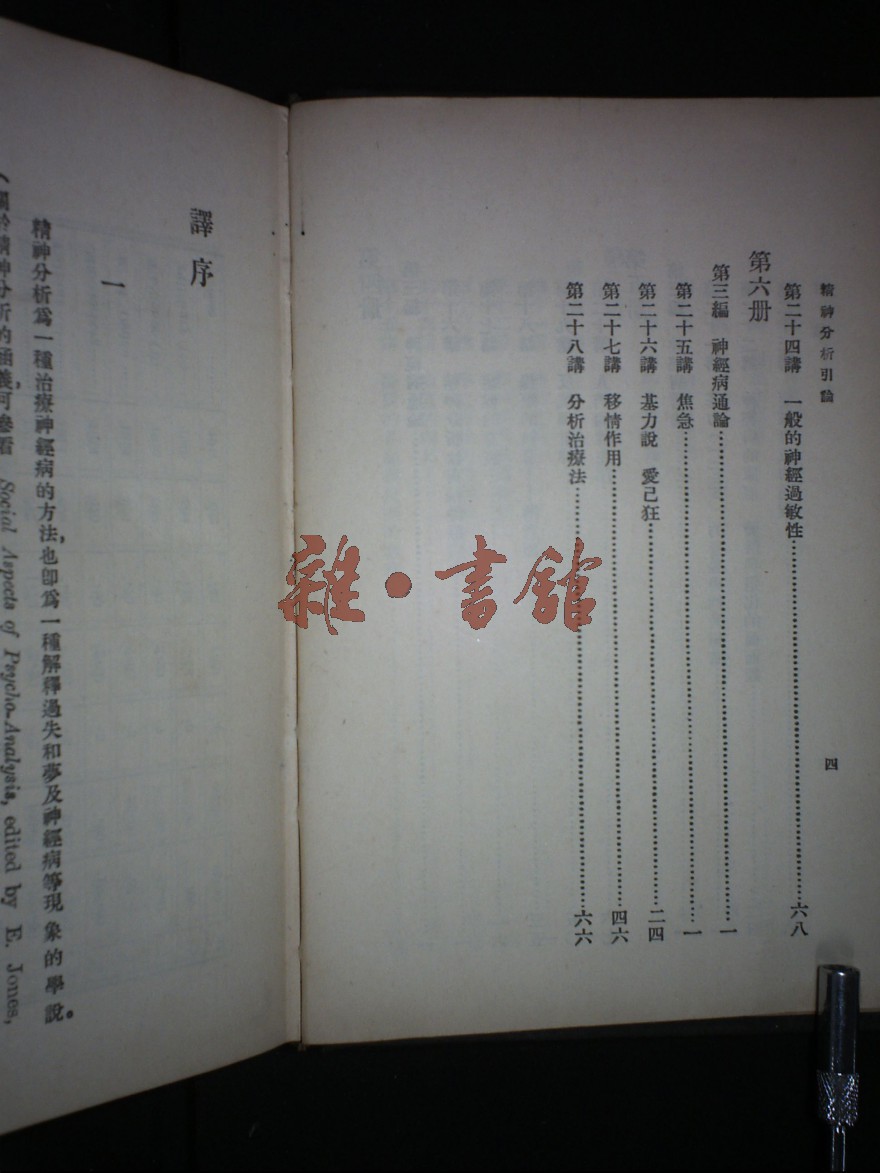 精神分析引論
四
第二十四講　一般的神經過敏性……六八
第六册
第三編　神經病通論……一
第二十五講　焦急……一
第二十六講　基力說　愛己狂……二四
第二十七講　移情作用……四六
第二十八講　分析治療法……六六
譯序
一
精神分析爲一種治療神經病的方法，也卽爲一種解釋過失和夢及神經病等現象的學說。
（關於精神分析的涵義，可參看 Social Aspects of Psycho-Analysis, edited by E. Jones,
雜·書館